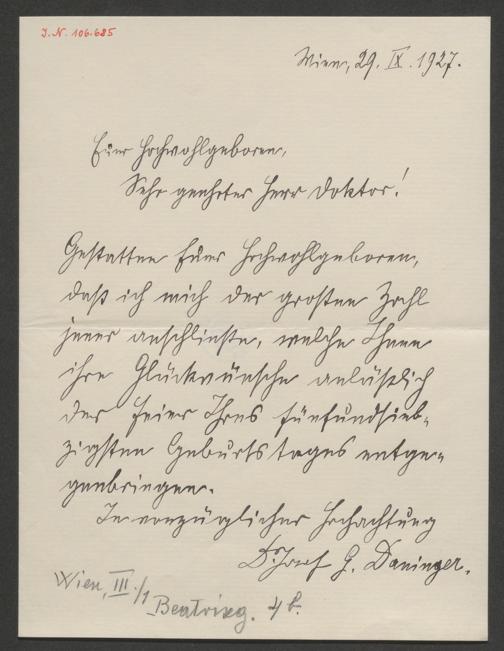 I.N. 106.685
Wien, 29. IX. 1927.
Euer Hochwohlgeboren,
Sehr geehrter Herr Doktor!
Gestatten Euer Hochwohlgeboren,
daß ich mich der großen Zahl
jener anschließe, welche Ihnen
ihre Glückwünsche anläßlich
der Feier Ihres fünfundsieb-
zigsten Geburtstages entge-
genbringen.
In vorzüglicher Hochachtung
Dr. Josef G. Daninger.
Wien, III./1
Beatrixg. 4 b.